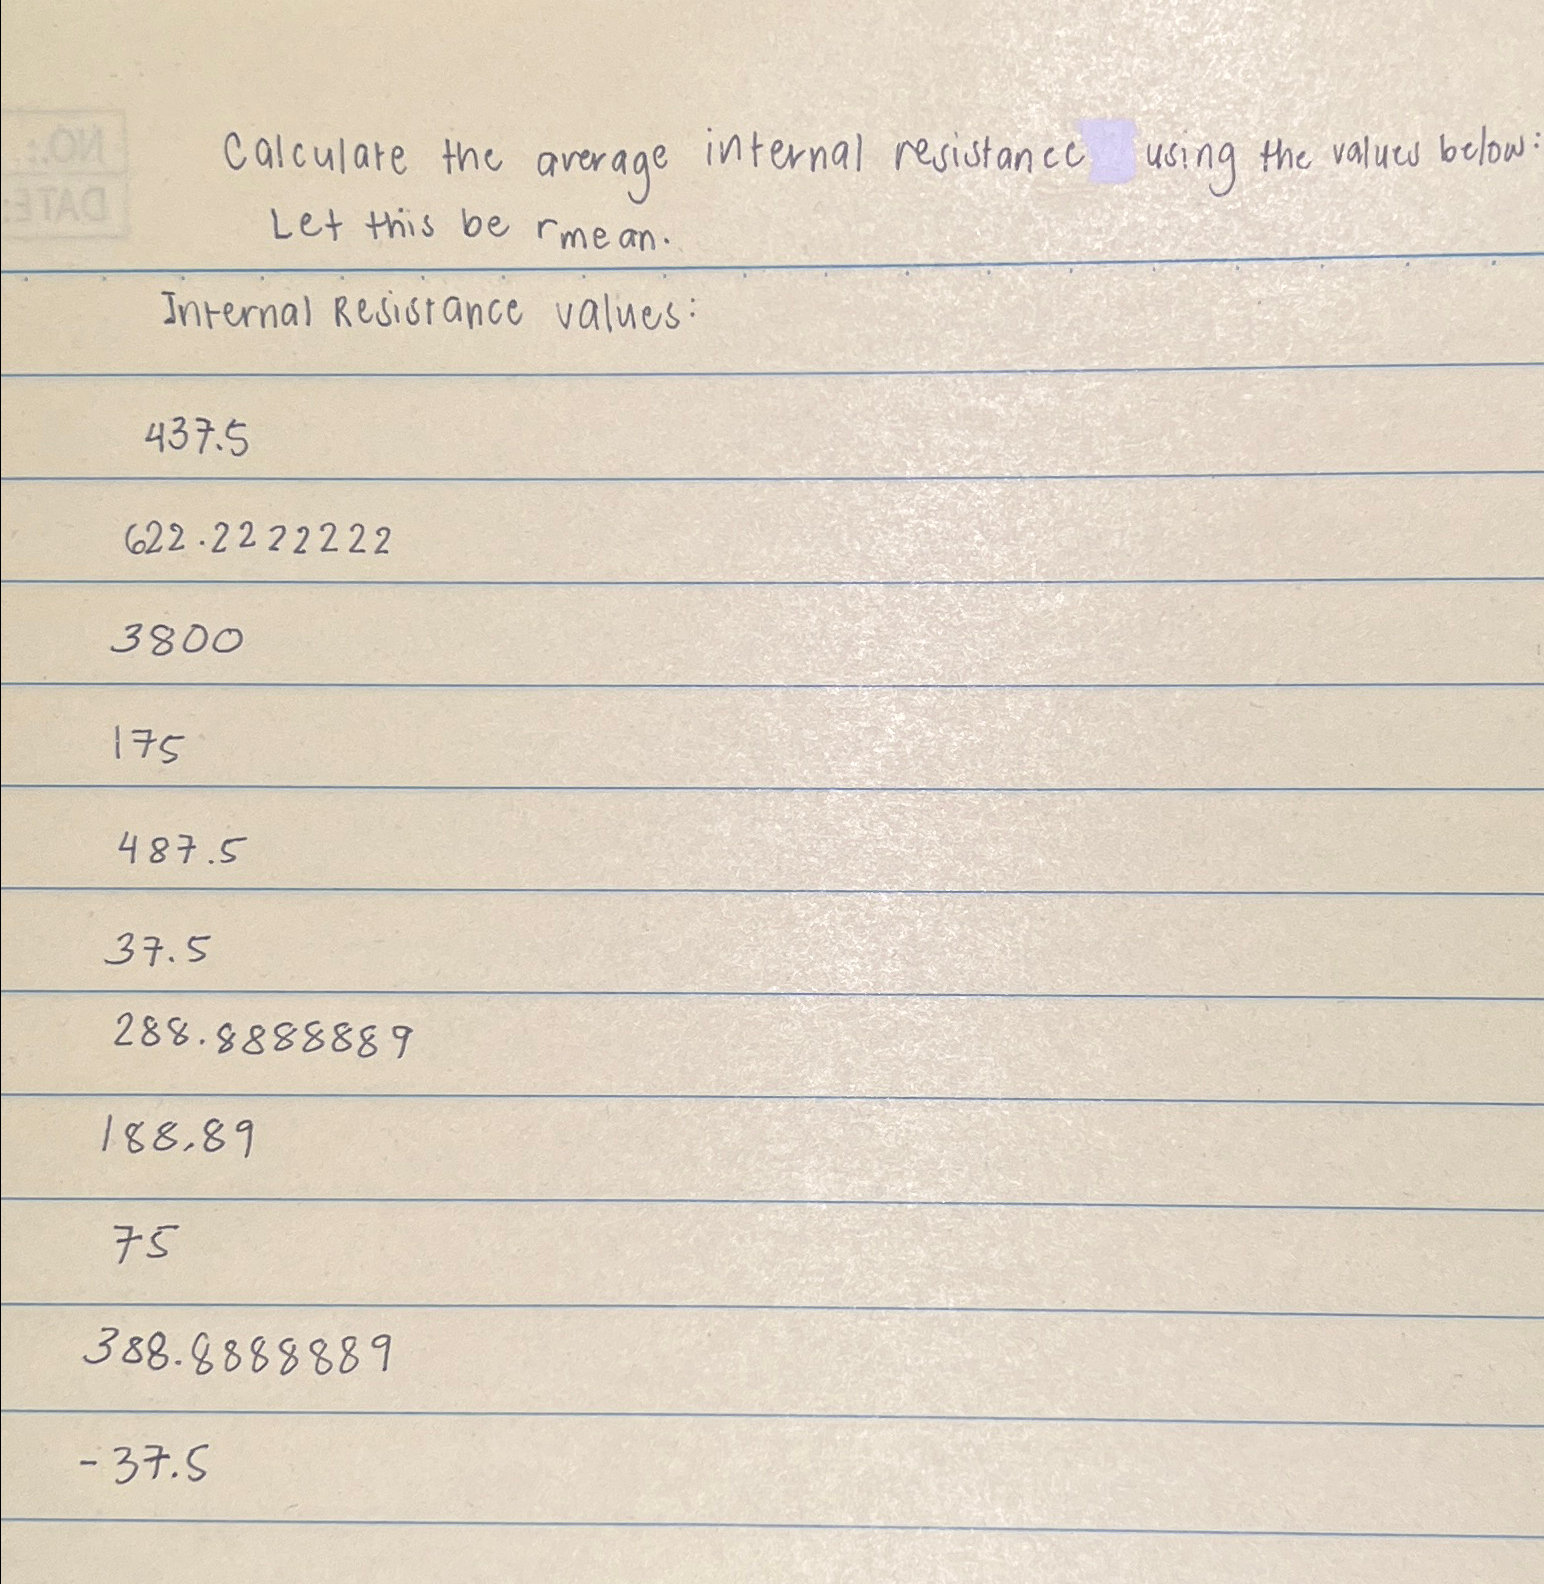 NO.:
DATE:
Calculate the average internal resistance using the values below:
Let this be rmean.
Internal Resistance values:
437.5
622.2222222
3800
175
487.5
37.5
288.8888889
188.89
75
388.8888889
-37.5